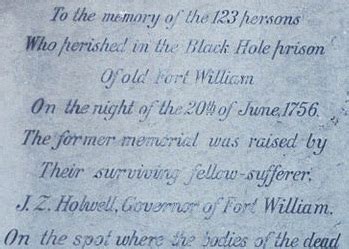 To the memory of the 123 persons
Who perished in the Black Hole prison
Of old Fort William
On the night of the 20th of June, 1756.
The former memorial was raised by
Their surviving fellow-sufferer,
J. Z. Holwell, Governor of Fort William,
On the spot where the bodies of the dead